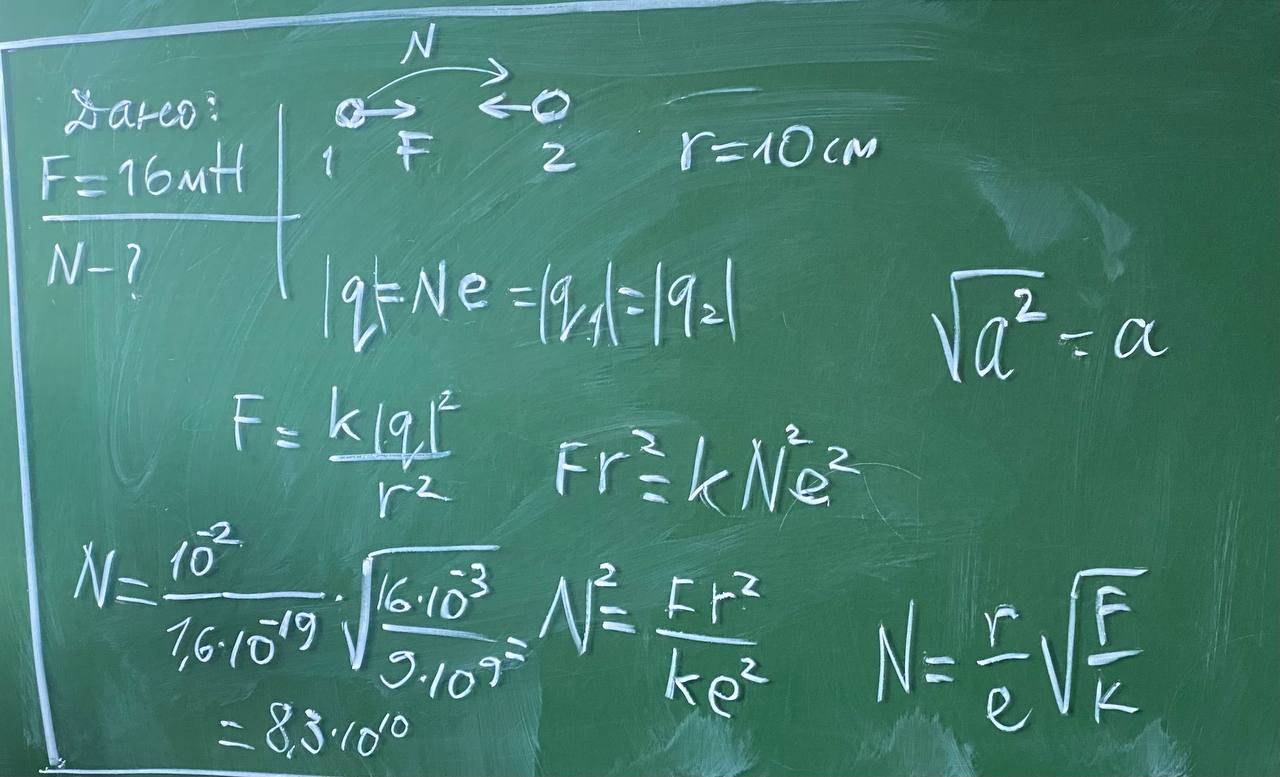 Дано:
F = 16 мН
N - ?
N
1 F 2
r = 10 см
|q| = Ne = |q₁| = |q₂|
√a² = a
F = k|q|²/r²
Fr² = kN²e²
N = 10⁻²/1,6·10⁻¹⁹ · √16·10⁻³/9·10⁹ =
= 8,3·10¹⁰
N² = Fr²/ke²
N = r/e √F/k